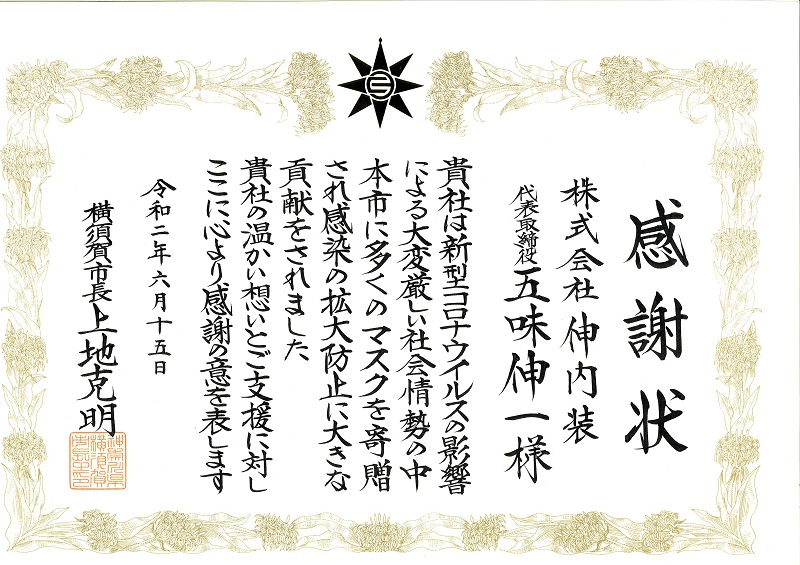 感謝状
株式会社 伸内装
代表取締役 五味伸一様
貴社は新型コロナウイルスの影響
による大変厳しい社会情勢の中
本市に多くのマスクを寄贈
され感染の拡大防止に大きな
貢献をされました
貴社の温かい想いとご支援に対し
ここに心より感謝の意を表します
令和二年六月十五日
横須賀市長 上地克明